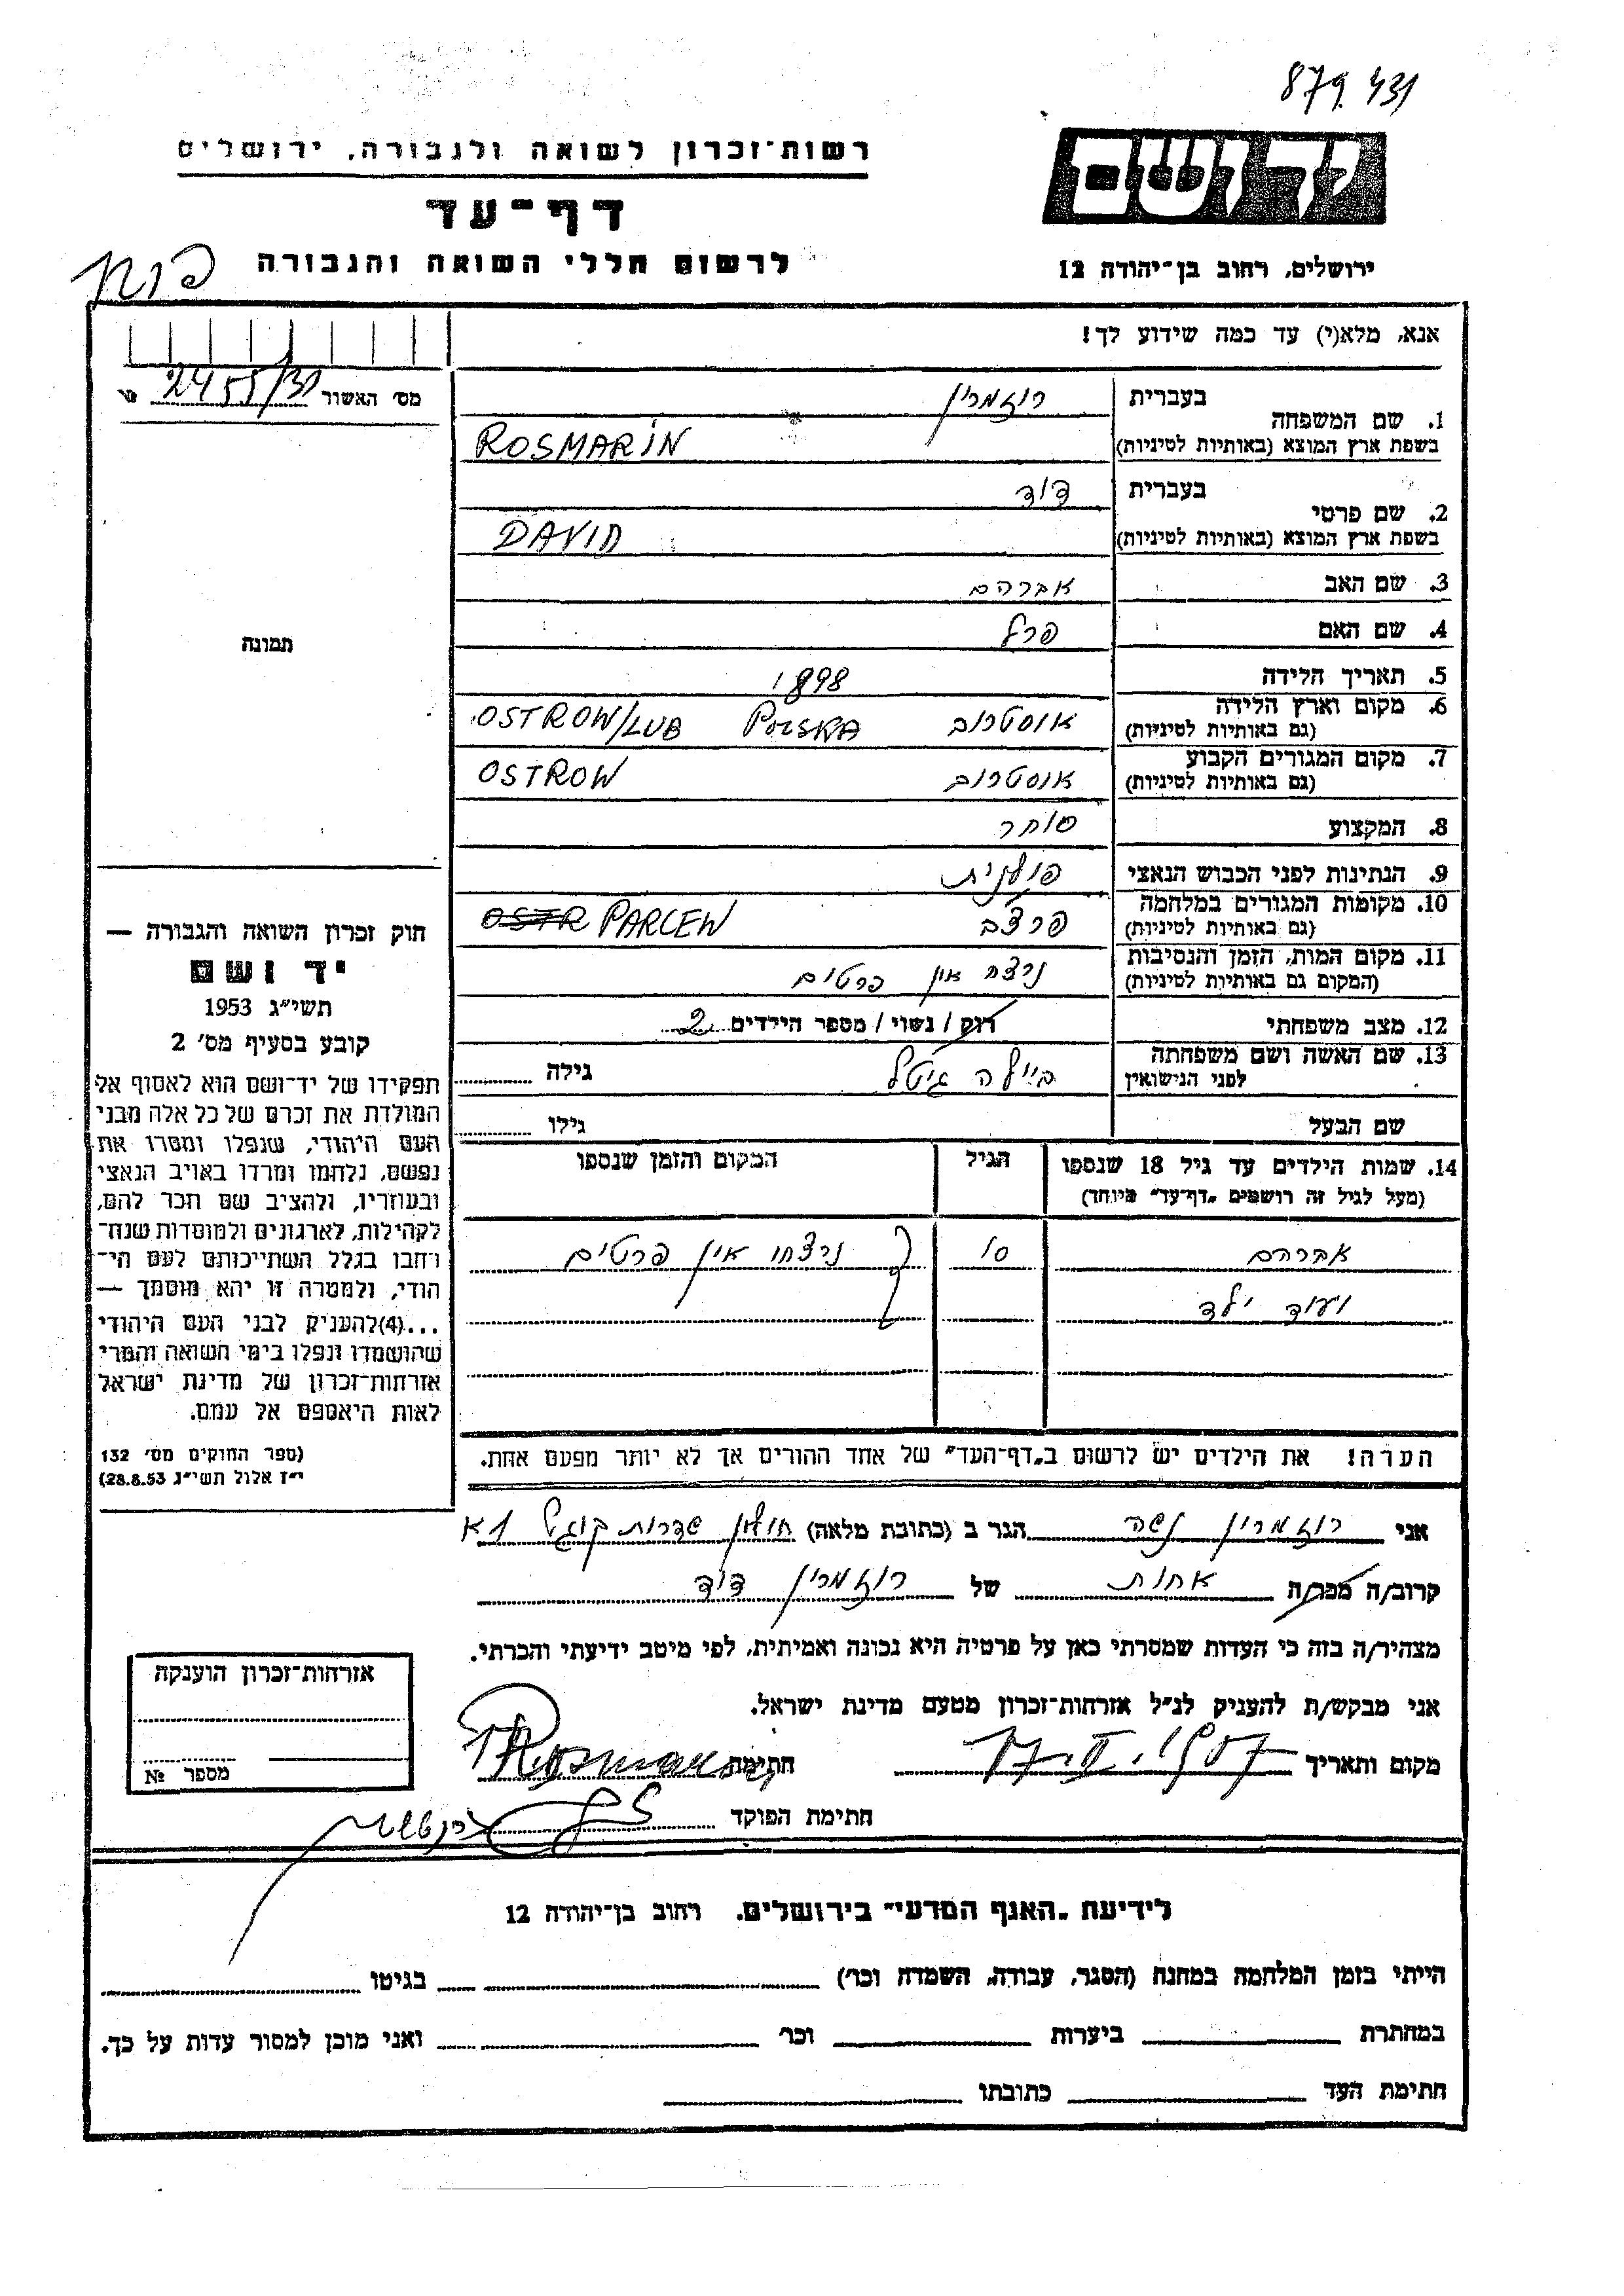 879.431
רשות־זכרון לשואה ולגבורה, ירושלים
יד ושם
דף־עד
לרשום חללי השואה והגבורה
ירושלים, רחוב בן־יהודה 12
אנא, מלא(י) עד כמה שידוע לך!
מס׳ האשור 2455/31
1. שם המשפחה
בעברית רוזמרין
בשפת ארץ המוצא (באותיות לטיניות) ROSMARIN
2. שם פרטי
בעברית דוד
בשפת ארץ המוצא (באותיות לטיניות) DAVID
3. שם האב אברהם
4. שם האם פרל
5. תאריך הלידה 1898
6. מקום וארץ הלידה אוסטרוב POLSKA OSTROW/LUB
(גם באותיות לטיניות)
7. מקום המגורים הקבוע אוסטרוב OSTROW
(גם באותיות לטיניות)
8. המקצוע סוחר
9. הנתינות לפני הכבוש הנאצי פולנית
10. מקומות המגורים במלחמה פרצב OSTR PARCEW
(גם באותיות לטיניות)
11. מקום המות, הזמן והנסיבות נרצח אין פרטים
(המקום גם באותיות לטיניות)
12. מצב משפחתי רוק / נשוי / מספר הילדים 2
13. שם האשה ושם משפחתה
לפני הנישואין ביילה גיטל גילה
שם הבעל גילו
14. שמות הילדים עד גיל 18 שנספו
(מעל לגיל זה רושמים „דף־עד״ מיוחד)
הגיל
המקום והזמן שנספו
אברהם 10 נרצחו אין פרטים
ועוד ילד
הערה! את הילדים יש לרשום ב„דף־העד״ של אחד ההורים אך לא יותר מפעם אחת.
תמונה
חוק זכרון השואה והגבורה —
יד ושם
תשי״ג 1953
קובע בסעיף מס׳ 2
תפקידו של יד־ושם הוא לאסוף אל
המולדת את זכרם של כל אלה מבני
העם היהודי, שנפלו ומסרו את
נפשם, נלחמו ומרדו באויב הנאצי
ובעוזריו, ולהציב שם וזכר להם,
לקהילות, לארגונים ולמוסדות שנח־
רחבו בגלל השתייכותם לעם הי־
הודי, ולמטרה זו יהא מוסמך —
...(4)להעניק לבני העם היהודי
שהושמדו ונפלו בימי השואה והמרי
אזרחות־זכרון של מדינת ישראל
לאות היאספם אל עמם.
(ספר החוקים מס׳ 132
י״ז אלול תשי״ג 28.8.53)
אני רוזמרין נשה הגר ב (כתובת מלאה) חולון שדרות קוגל 1א
קרוב/ה מכר/ה אחות של רוזמרין דוד
מצהיר/ה בזה כי העדות שמסרתי כאן על פרטיה היא נכונה ואמיתית, לפי מיטב ידיעתי והכרתי.
אני מבקש/ת להעניק לנ״ל אזרחות־זכרון מטעם מדינת ישראל.
מקום ותאריך 17.II.1957 חתימת
חתימת הפוקד
אזרחות־זכרון הוענקה
מספר №
לידיעת „האגף המדעי״ בירושלים, רחוב בן־יהודה 12
הייתי בזמן המלחמה במחנה (הסגר, עבודה, השמדה וכר׳) בגיטו
במחתרת ביערות וכר׳ ואני מוכן למסור עדות על כך.
חתימת העד כתובתו